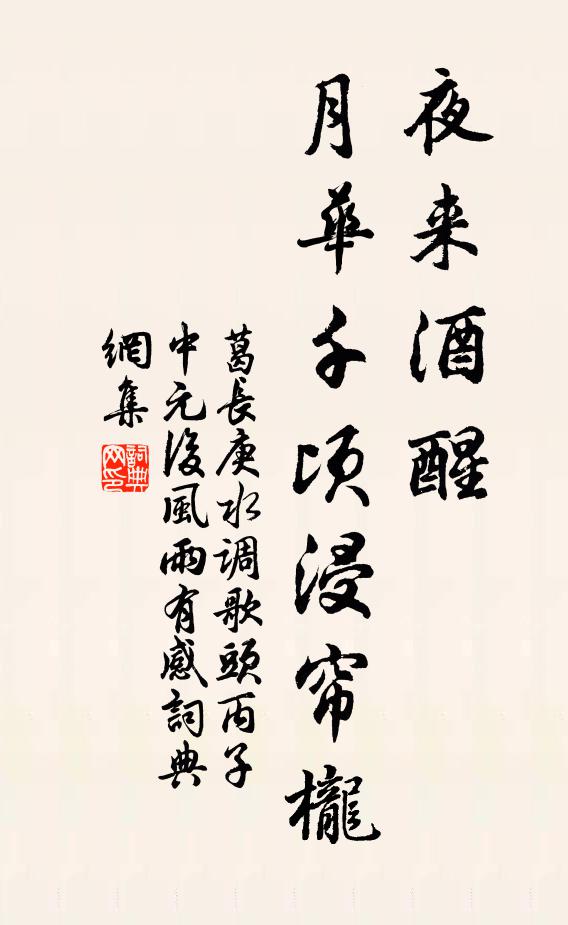 夜来酒醒
月華千頃浸帘櫳
葛長庚水调歌頭丙子
中元後風雨有感詞典
網集
詞典
网印